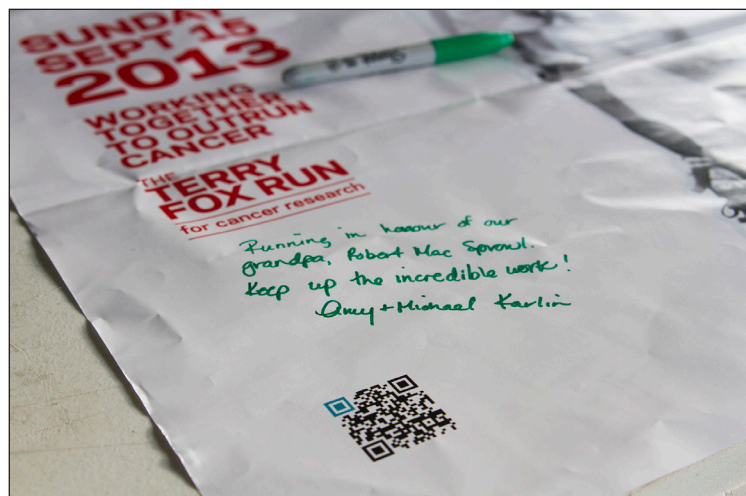 SUNDAY
SEPT 15
2013
WORKING
TOGETHER
TO OUTRUN
CANCER
THE
TERRY
FOX RUN
for cancer research
Running in honour of our
grandpa, Robert Mac Sprowl.
Keep up the incredible work!
Amy + Michael Karlin